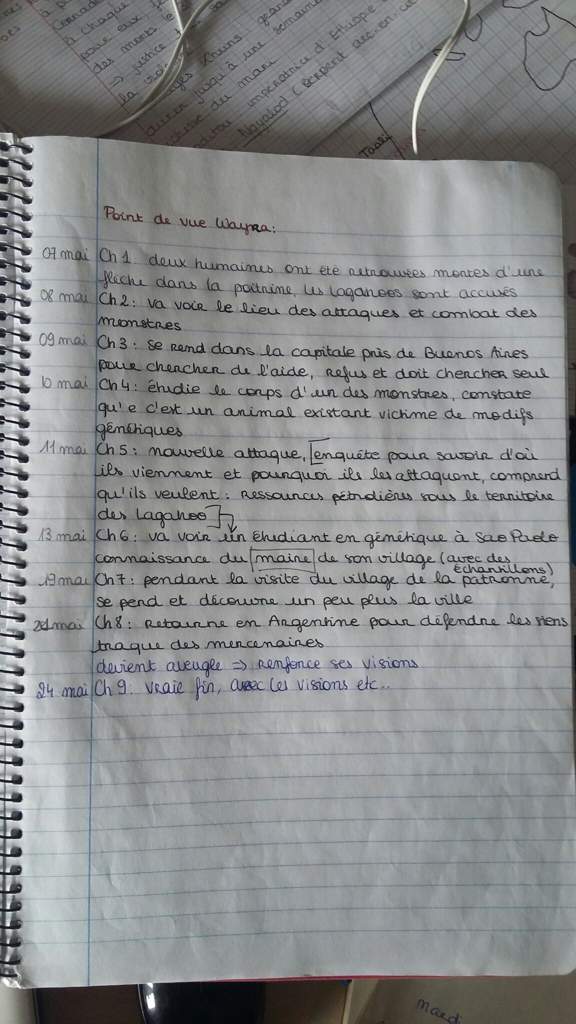 à chaque
pour aux
des morts le
⇒ justice
la
durer jusqu'à une semaine
impératrice d'Ethiopie
Point de vue Wayra:
07 mai Ch 1: deux humaines ont été retrouvées mortes d'une
flèche dans la poitrine, les Lagahoos sont accusés
08 mai Ch 2: va voir le lieu des attaques et combat des
monstres
09 mai Ch 3: se rend dans la capitale près de Buenos Aires
pour chercher de l'aide, refus et doit chercher seul
10 mai Ch 4: étudie le corps d'un des monstres, constate
qu'e c'est un animal existant victime de modifs
génétiques
11 mai Ch 5: nouvelle attaque, [enquête pour savoir d'où
ils viennent et pourquoi ils les attaquent, comprend
qu'ils veulent: ressources pétrolières sous le territoire
des Lagahoo]
13 mai Ch 6: va voir un étudiant en génétique à Sao Paolo
connaissance du maire de son village (avec des
échantillons)
19 mai Ch 7: pendant la visite du village de la patronne,
se perd et découvre un peu plus la ville
mai Ch 8: retourne en Argentine pour défendre les siens
traque des mercenaires
devient aveugle ⇒ renforce ses visions
24 mai Ch 9: vraie fin, avec les visions etc..
mardi